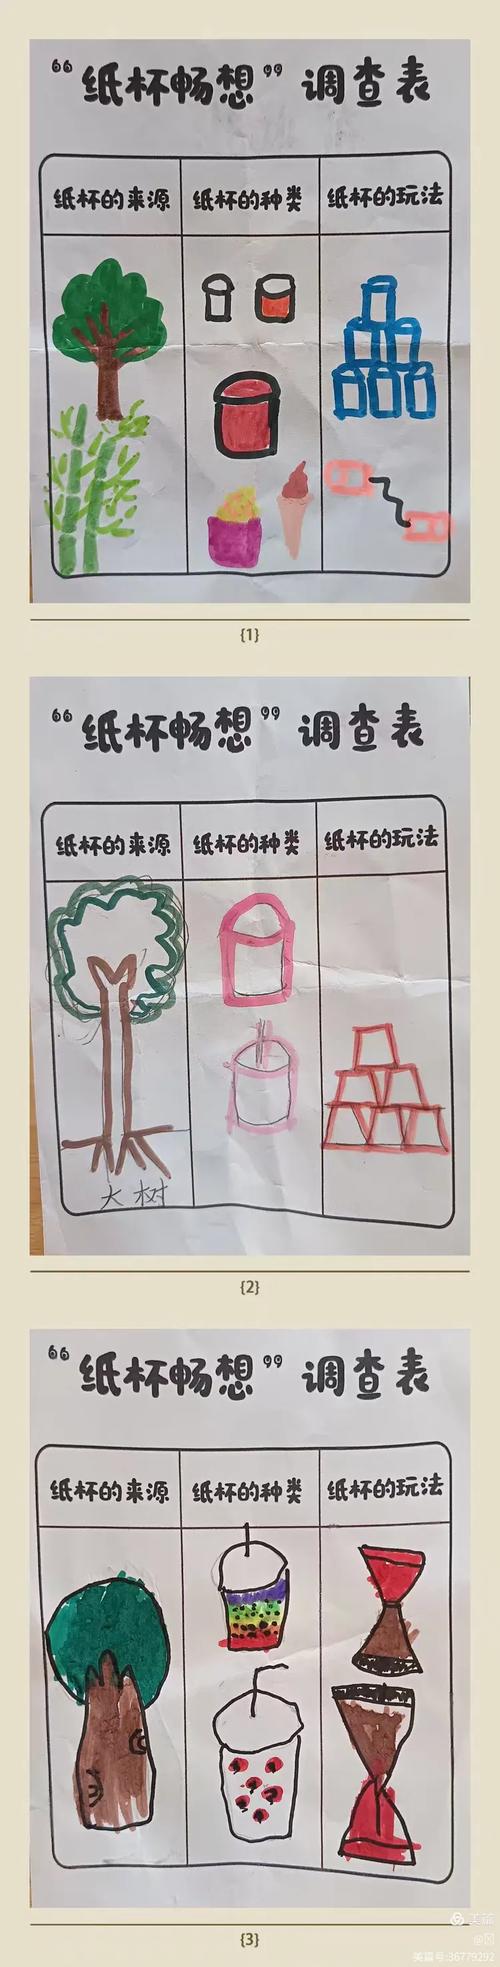 “纸杯畅想”调查表
纸杯的来源 纸杯的种类 纸杯的玩法
{1}
“纸杯畅想”调查表
纸杯的来源 纸杯的种类 纸杯的玩法
大树
{2}
“纸杯畅想”调查表
纸杯的来源 纸杯的种类 纸杯的玩法
{3}
美篇
美篇号:36779292